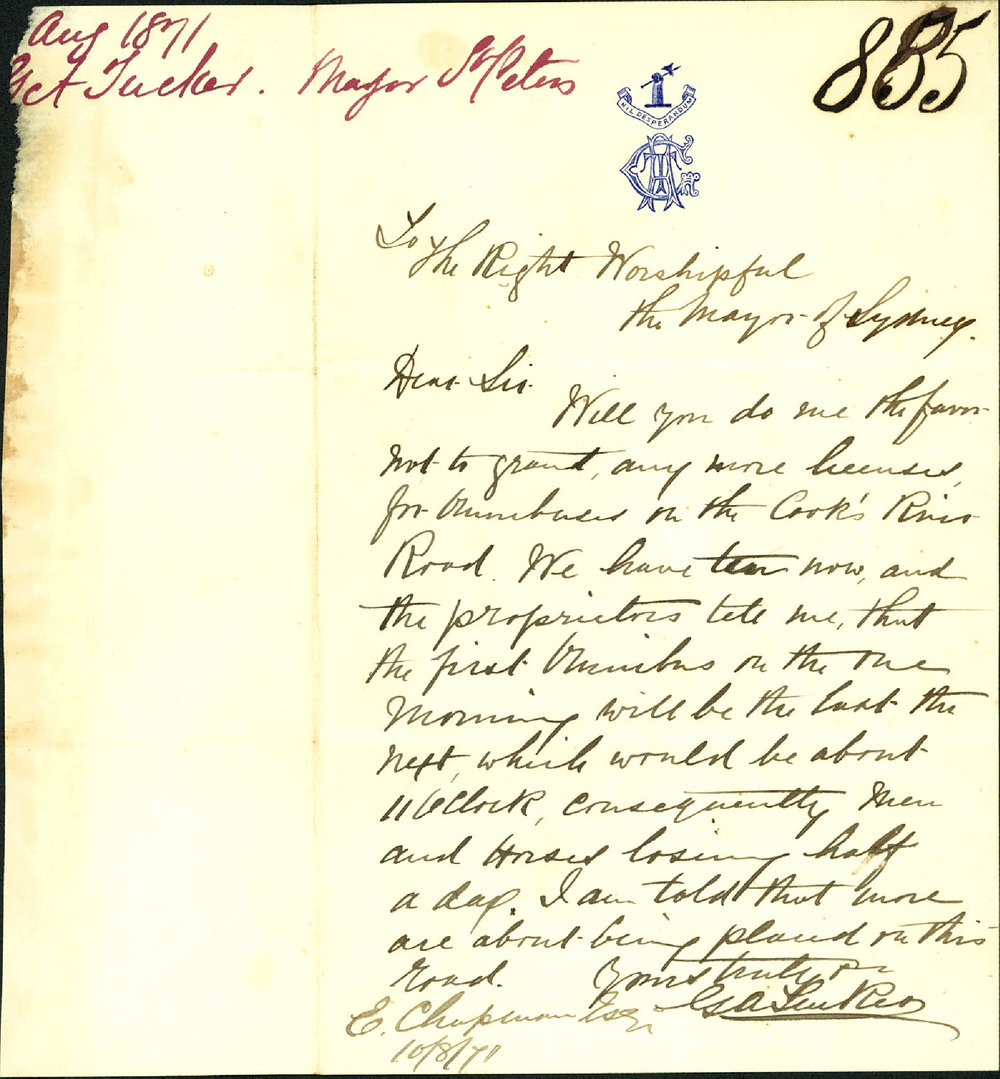 Aug 1871
G A Tucker. Mayor St Peters
885
NIL DESPERANDUM
To The Right Worshipful
the Mayor of Sydney.
Dear Sir
Will you do me the favor
not to grant, any more licenses,
for Omnibuses on the Cook's River
Road. We have ten now, and
the proprietors tele me, that
the first Omnibus on the one
Morning will be the last the
next, which would be about
11 O'Clock, consequently Men
and Horses losing half
a day. I am told that more
are about being placed on this
road. Yours truly
G A Tucker
E. Chapman Esqr
10/8/71